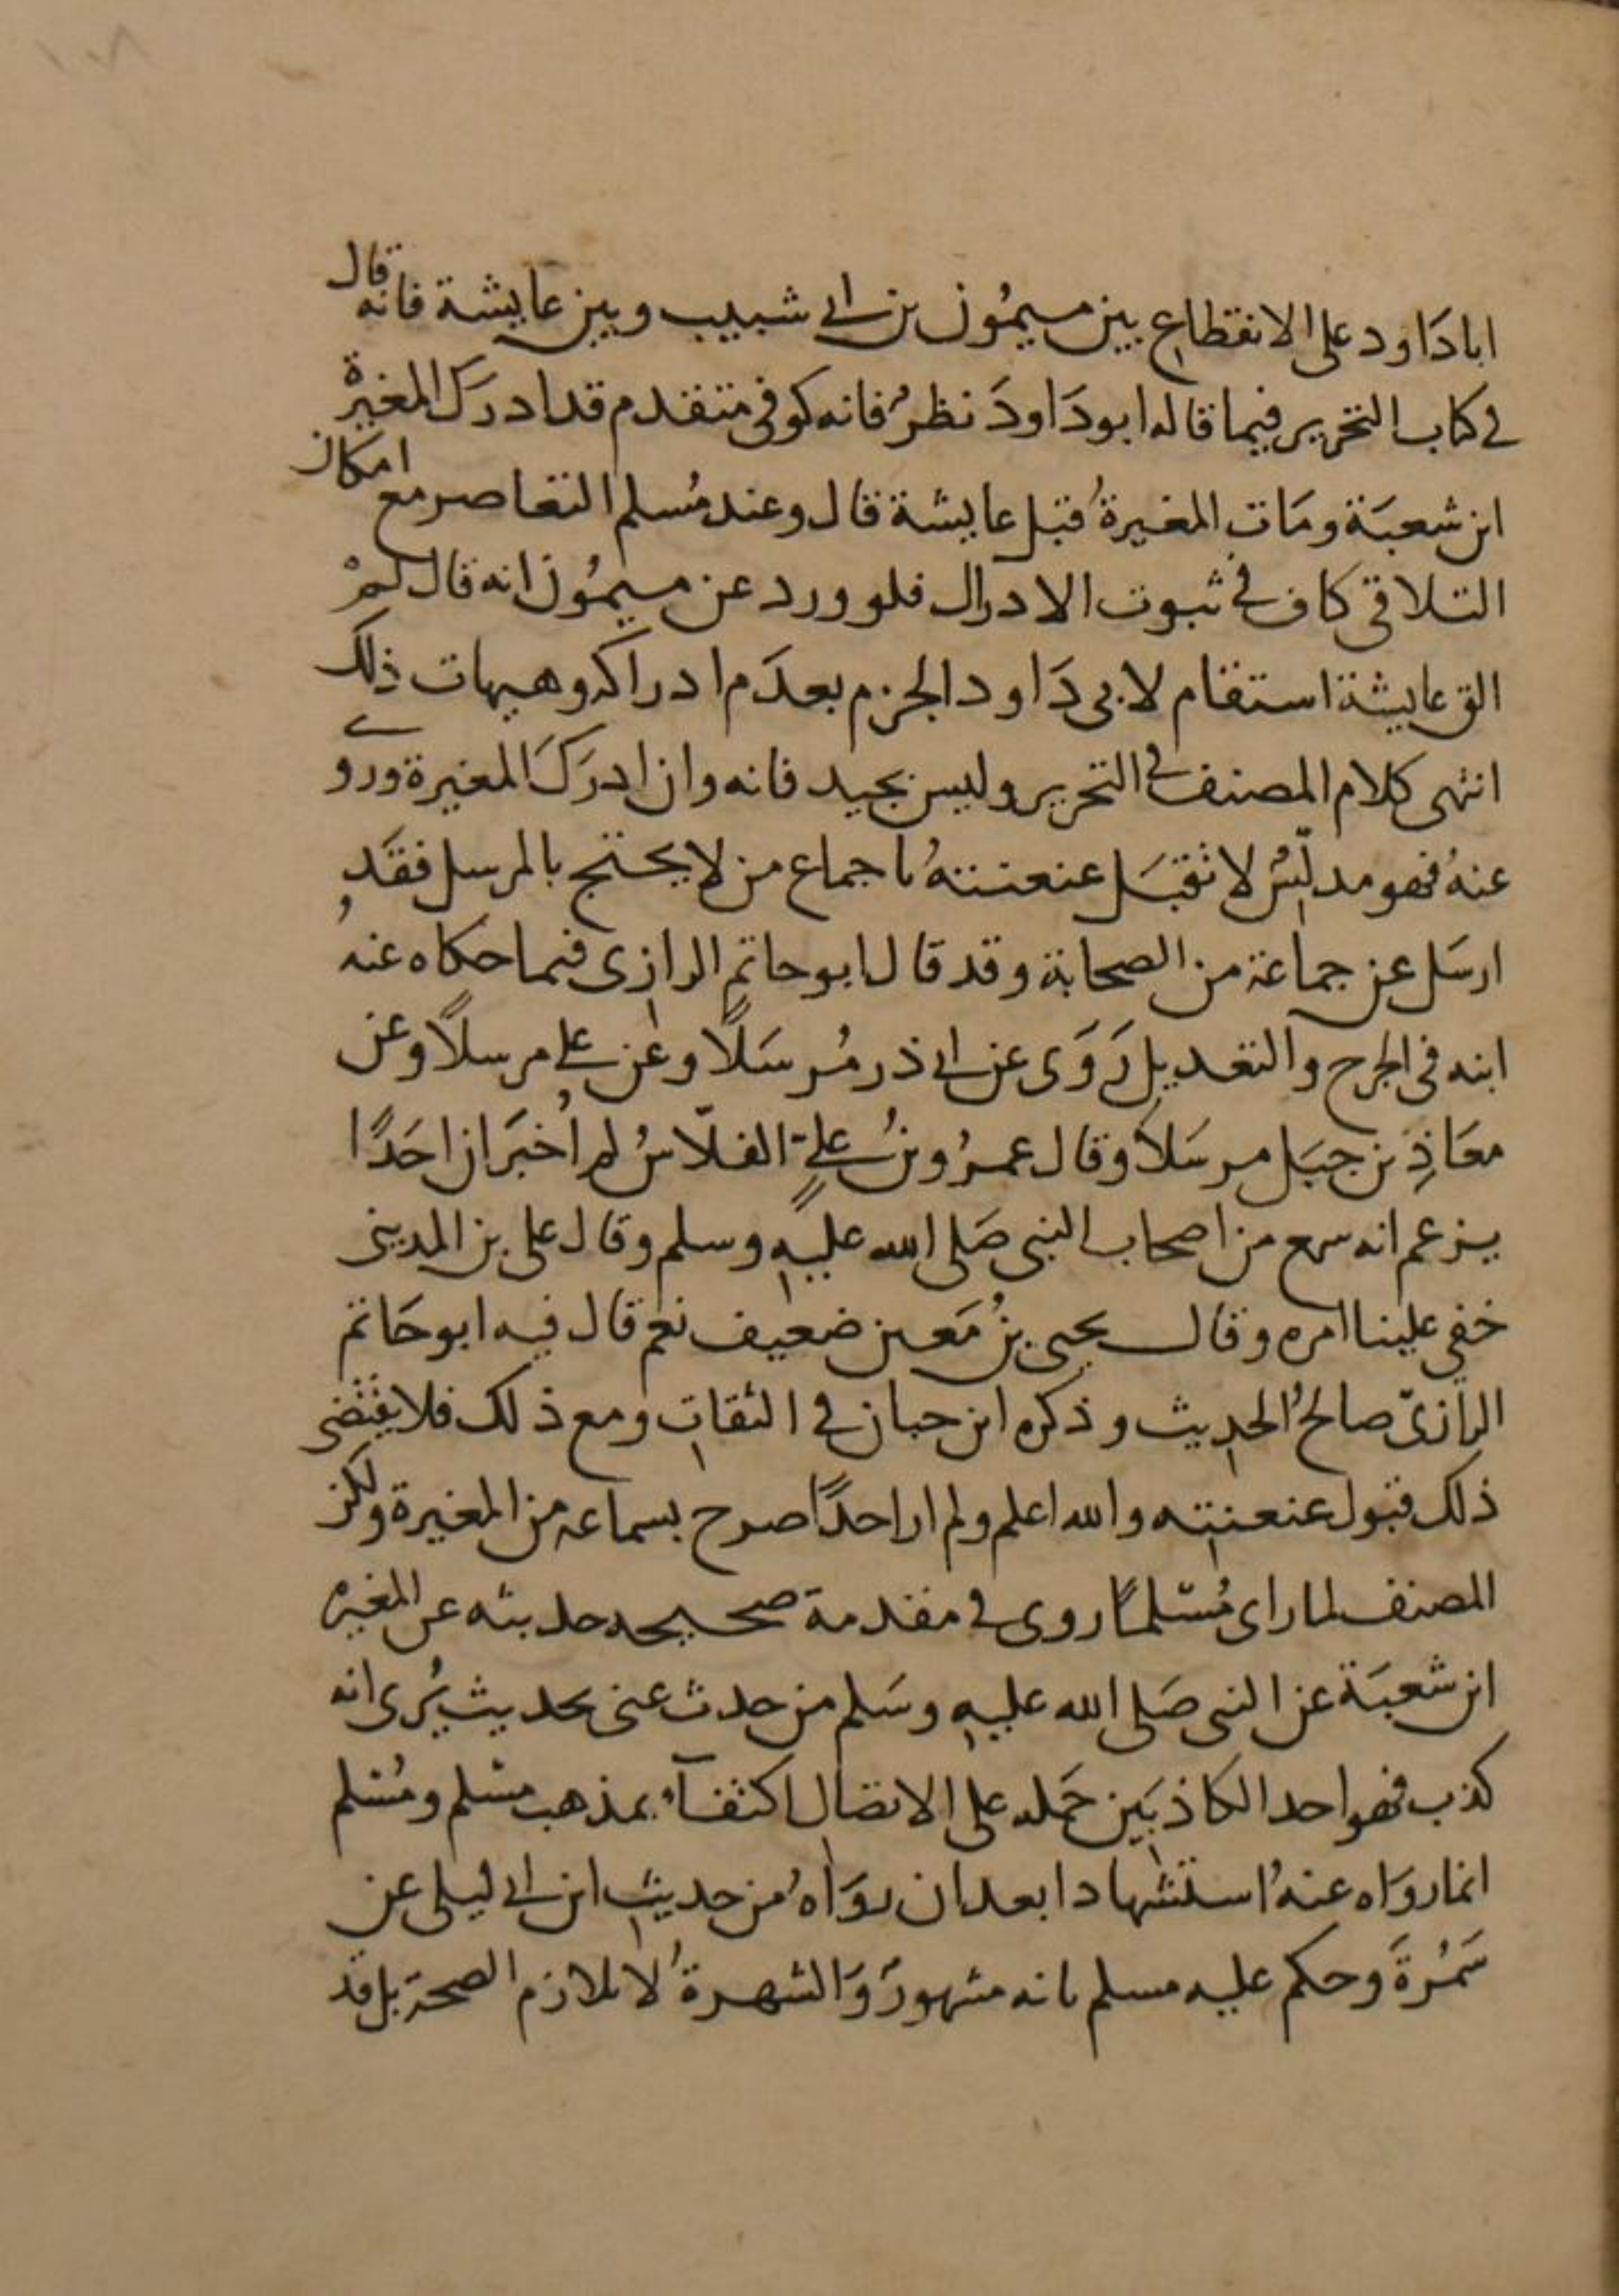 ابا دَاود على الانقطاع بين ميمُون بن ابي شبيب وبين عايشة فانه قال
في كتاب التحرير فيما قاله ابو دَاودَ نظرٌ فانه كوفى متقدم قد ادرك المغيرة
ابن شعبَة ومَات المغيرةُ قبل عايشة قال وعند مُسلم التعاصر مع امكان
التلاقى كاف في ثبوت الادراك فلو ورد عن ميمُون انه قال لمْ
الق عايشة استقام لابى دَاود الجزم بعدَم ادراكه وهيهات ذلك
انتهى كلام المصنف في التحرير وليس بجيد فانه وان ادرَكَ المغيرة وروى
عنهُ فهو مدلّسٌ لا تقبَل عنعنتهُ باجماع من لا يحتج بالمرسل فقَد
ارسَل عن جماعة من الصحابة وقد قال ابو حاتمٍ الرازى فيما حكاه عنهُ
ابنه فى الجرح والتعديل رَوَى عن ابي ذر مُرسَلاً وعن علي مرسلاً وعن
معَاذِ بن جبَل مرسَلاً وقال عمرُو بنُ عليٍّ الفلاّسُ لم اُخبَر ان احَدًا
يزعم انه سمع من اصحاب النبى صَلى الله عليهِ وسلم وقال على بن المدينى
خفي علينا امره وقال يحيى بنُ مَعين ضعيف نعم قال فيه ابو حَاتم
الرازىّ صالحُ الحديث وذكره ابن حبان في الثقات ومع ذلك فلا يقتضى
ذلك قبول عنعنته والله اعلم ولم ار احدًا صرح بسماعه من المغيرة ولكن
المصنف لما راى مُسْلمًا روى في مقدمة صحيحه حديثه عن المغيرة
ابن شعبَة عن النبى صَلى الله عليهِ وسَلم من حدث عنى بحديث يُرى انه
كذب فهو احد الكاذبَين حَمله على الاتصال اكتفآءً بمذهب مسْلم ومُسْلم
انما روَاه عنهُ استشهادا بعد ان روَاهُ من حديث ابن ابي ليلى عن
سَمُرةَ وحكم عليه مسلم بانه مشهورٌ وَالشهرةُ لا تلازم الصحة بل قد